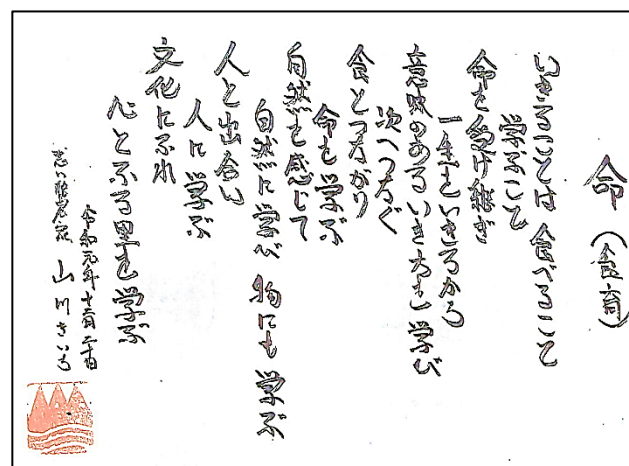 命(食育)
いきることは 食べること
学ぶこと
命を受け継ぎ
一生をいきるから
意味のあるいき方を学び
次へつなぐ
食とつながり
命を学ぶ
自然を感じて
自然に学び 物にも学ぶ
人と出合い
人に学ぶ
文化にふれ
心とふる里を学ぶ
令和元年十二月二十日
山川きいち